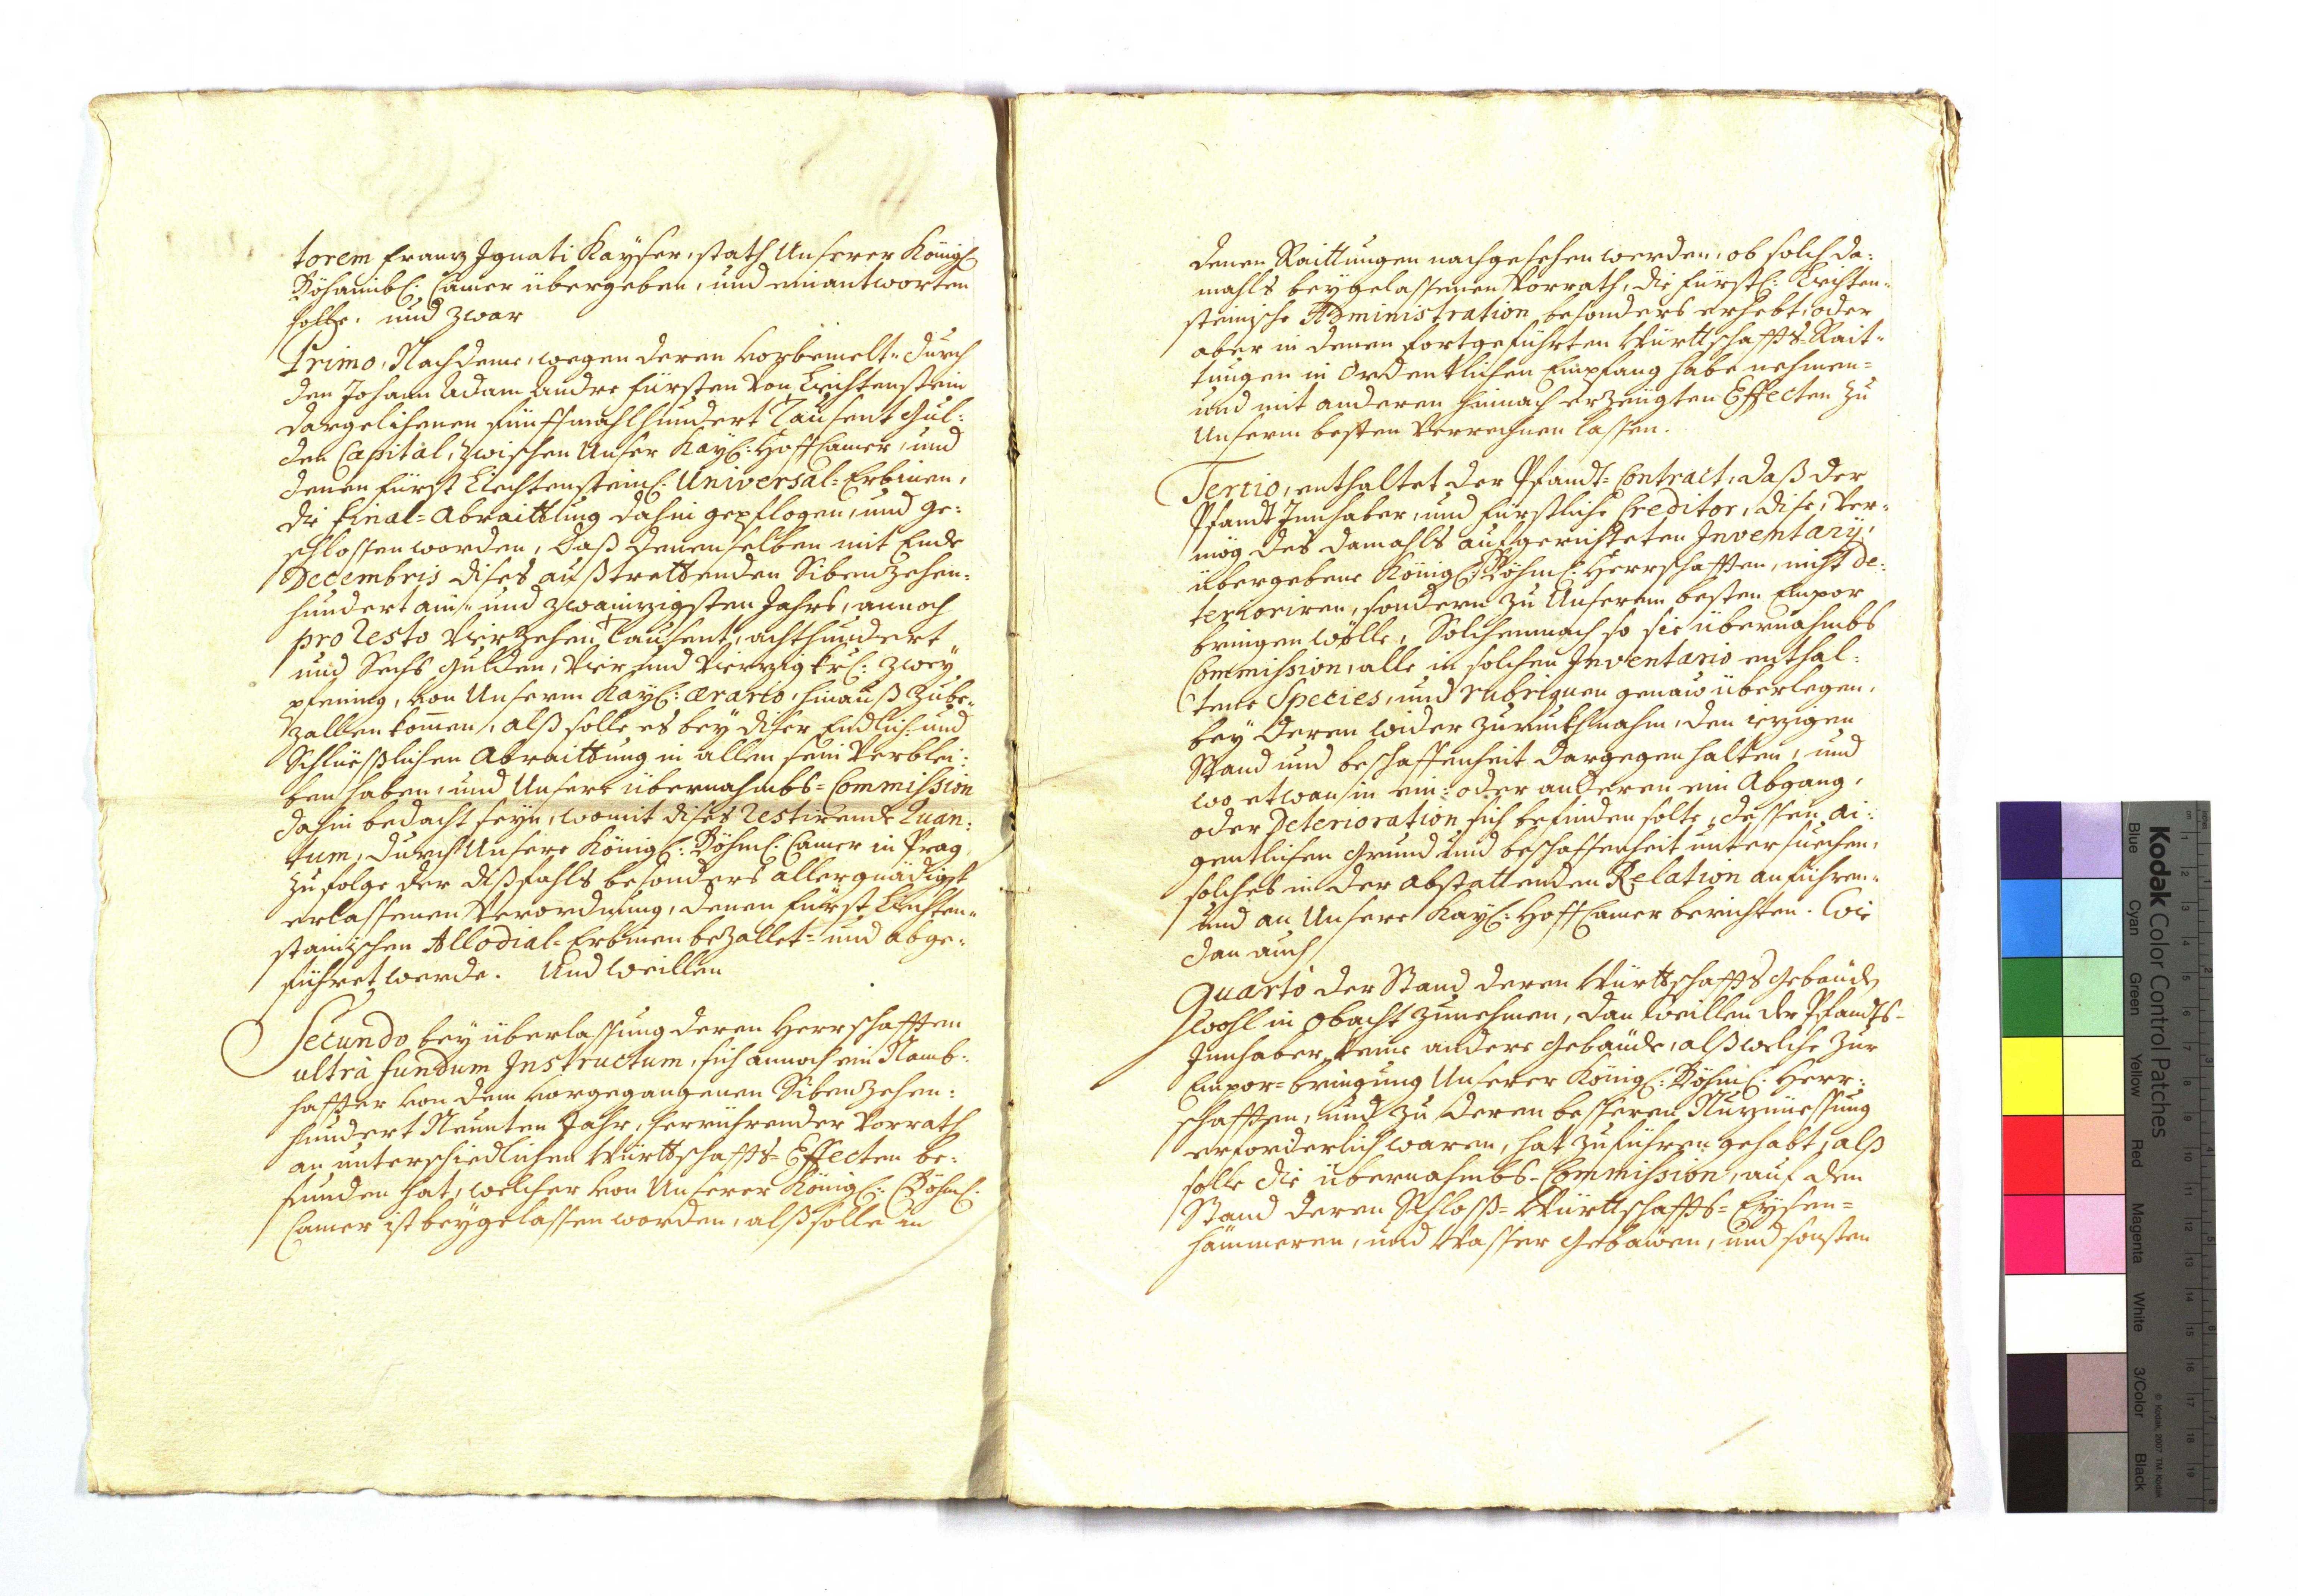 torem Franz Ignati Kayser, stath Unserer Königl:
Böhaimbl: Camer übergeben, und einantworten
solle. und zwar
Primo, Nachdeme, wegen deren vorbemelt- durch
den Johann Adam Andre Fürsten von Liechtenstein
dargelihenen fünffmahlhundert Tausent Gul:
den Capital, zwischen Unser Kayl: Hoff Camer, und
denen fürst Liechtensteinl: Universal-Erbinen,
die Final-Abraittung dahin gepflogen, und ge:
schlossen worden, daß denenselben mit Ende
Decembris dises außtrettenden Sibenzehen-
hundert ain- und zwainzigsten Jahrs, annoch
pro resto Vierzehen Tausent, achthundert
und Sechs Gulden, Vier und Vierzig krl: zwey
pfening, von Unserm Kayl: ærario, hinauß zube-
zallen komen, alß solle es bey diser Endlich- und
Schlüeßlichen Abraittung in allem sein Verblei:
ben haben, und Unsere übernahmbs-Commission
dahin bedacht seyn, womit dises restirende Quan:
tum, durch Unsere Königl: Böhml: Camer in Prag
zu folge der dißfahls besonders allergnädigst
erlassenen Verordnung, denen fürst Liechten-
stainischen Allodial-Erbinen bezallet- und abge-
führet werde. Und weillen
Secundo bey überlassung deren Herrschafften
ultrà fundum Instructum, sich annoch ein Namb:
haffter von dem vorgegangenen Sibenzehen:
hundert Neunten Jahr, herrührender Vorrath
an unterschiedlichen Württschaffts-Effecten be:
funden hat, welcher von Unserer Königl: Böhml:
Camer ist beygelassen worden, alß solle in
denen Raittungen nachgesehen werden, ob solch da:
mahls beygelassenen Vorrath, die fürstl: Liechten-
steinische Administration besonders erhebt, oder
aber in denen fortgeführten Württschaffts-Rait-
tungen in Ordentlichen Empfang habe nehmen-
und mit anderen hinnach erzeugten Effecten zu
Unserm besten Verrechnen lassen.
Tertio, enthaltet der Pfandt-Contract, daß der
Pfandt Innhaber, und fürstliche Creditor, dise, Ver-
mög des damahls aufgerichteten Inventarÿ,
übergebene Königl: Böhml: Herrschafften, nicht de:
terioriren, sondern zu Unserem besten Empor
bringen wölle, Solchemnach so sie übernahmbs
Commission, alle in solchen Inventario enthal:
tene Species, und rubriquen genaw überlegen,
bey deren wider zuruckhnahm, den iezigen
Stand und beschaffenheit dargegen halten, und
wo etwan in ein- oder anderen ein Abgang,
oder Deterioration sich befinden solte, dessen ai:
gentlichen Grund und beschaffenheit untersuechen,
solches in der abstattenden Relation anführen-
und an Unsere Kayl: Hoff Camer berichten. Wie
dan auch
Quarto der Stand deren Württschaffts Gebäude
wohl in Obacht zunehmen, dan weillen der Pfandts-
Innhaber keine andere Gebäude, alß welche zur
Empor-bringung Unserer Königl: Böhml: Herr:
schafften, und zu deren besseren Nuznüessung
erforderlich waren, hat zuführen gehabt, alß
solle die übernahmbs-Commission, auf den
Stand deren Schloß- Württschaffts- Eysen-
hämmeren, und Wasser Gebäwen, und sonsten
Kodak Color Control Patches
Blue Cyan Green Yellow Red Magenta White 3/Color Black
© Kodak, 2007 TM: Kodak